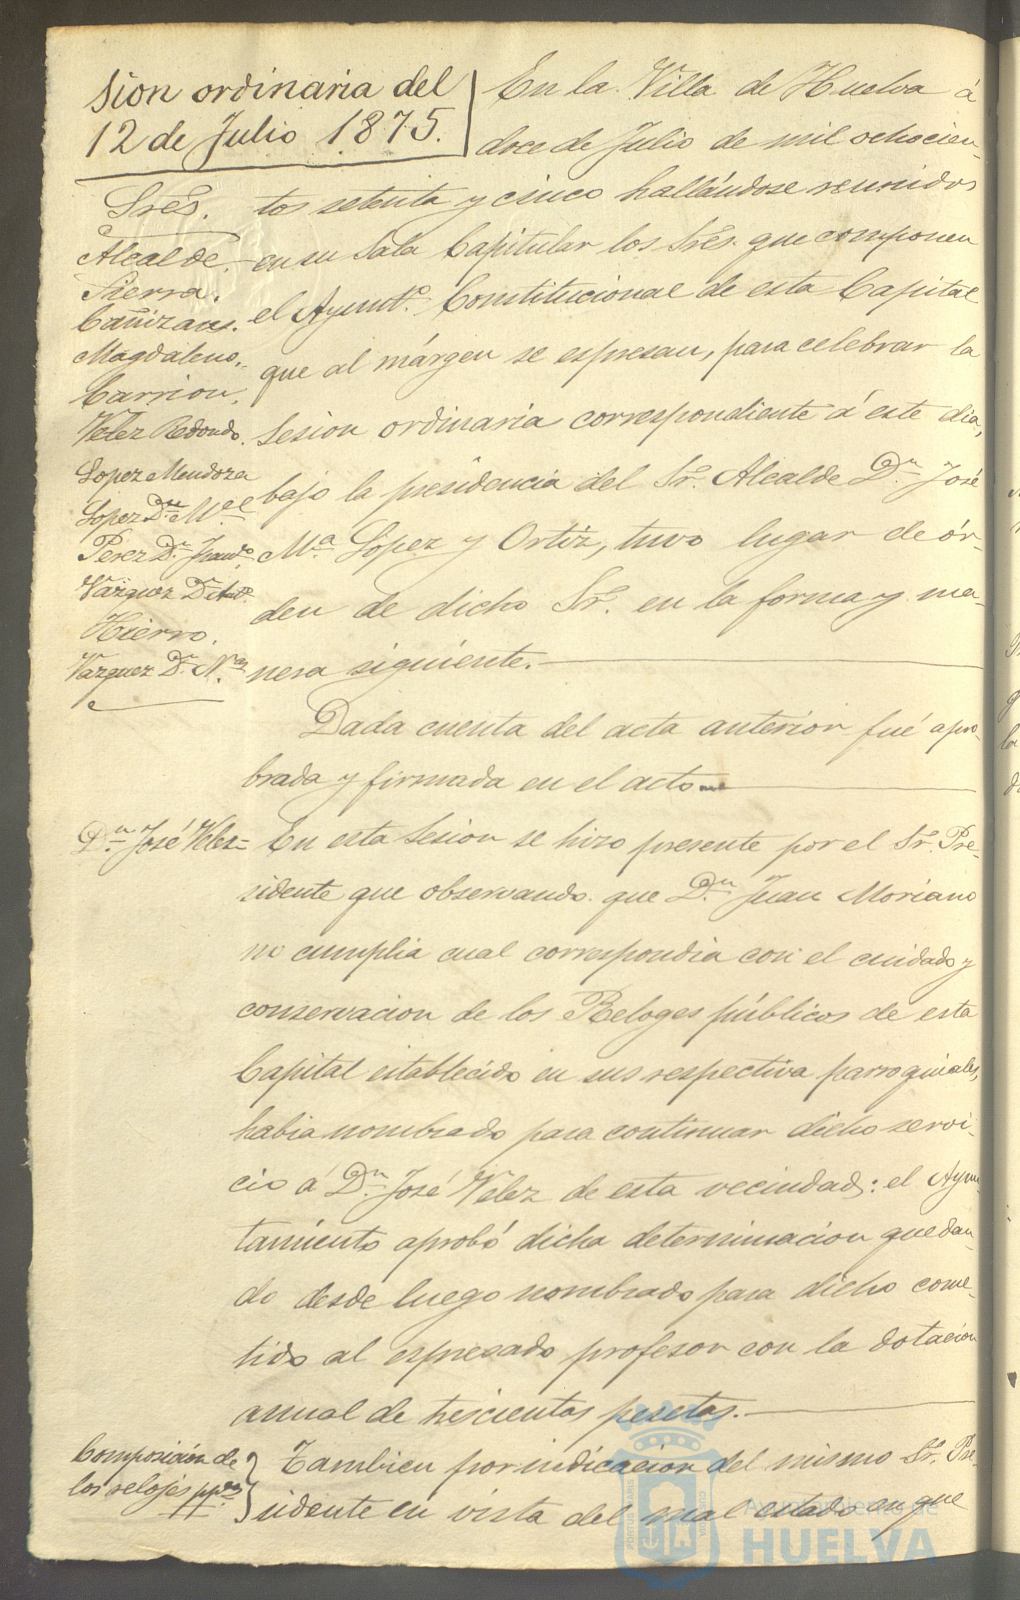 sion ordinaria del
12 de Julio 1875.
Sres.
Alcalde.
Sierra.
Cañizares.
Magdaleno.
Carrion.
Velez Redondo.
Lopez Mendoza
Lopez Dn. Ml
Perez Dn. Franco.
Vazquez Dn. Anto.
Hierro.
Vazquez Dn. N.
En la Villa de Huelva á
doce de Julio de mil ochocien-
tos setenta y cinco hallándose reunidos
en su Sala Capitular los Sres. que componen
el Ayuntº. Constitucional de esta Capital
que al márgen se espresan, para celebrar la
Sesion ordinaria correspondiente á este dia,
bajo la presidencia del Sr. Alcalde Dn. José
Mª López y Ortíz, tuvo lugar de ór-
den de dicho Sr. en la forma y ma-
nera siguiente.
Dada cuenta del acta anterior fué apro-
brada y firmada en el acto
Dn. José Velez=
En esta Sesion se hizo presente por el Sr. Pre-
sidente que observando que Dn. Juan Moriano
no cumplia cual correspondia con el cuidado y
conservacion de los Reloges públicos de esta
Capital establecido en sus respectiva parroquiales,
habia nombrado para continuar dicho servi-
cio á Dn. José Velez de esta vecindad: el Ayun-
tamiento aprobó dicha determinacion quedan-
do desde luego nombrado para dicho come-
tido al espresado profesor con la dotacion
anual de trescientas pesetas.
Composición de
los relojes ppcos
Tambien por indicacion del mismo Sr. Pre-
sidente en vista del mal estado en que
Ayuntamiento de
HUELVA